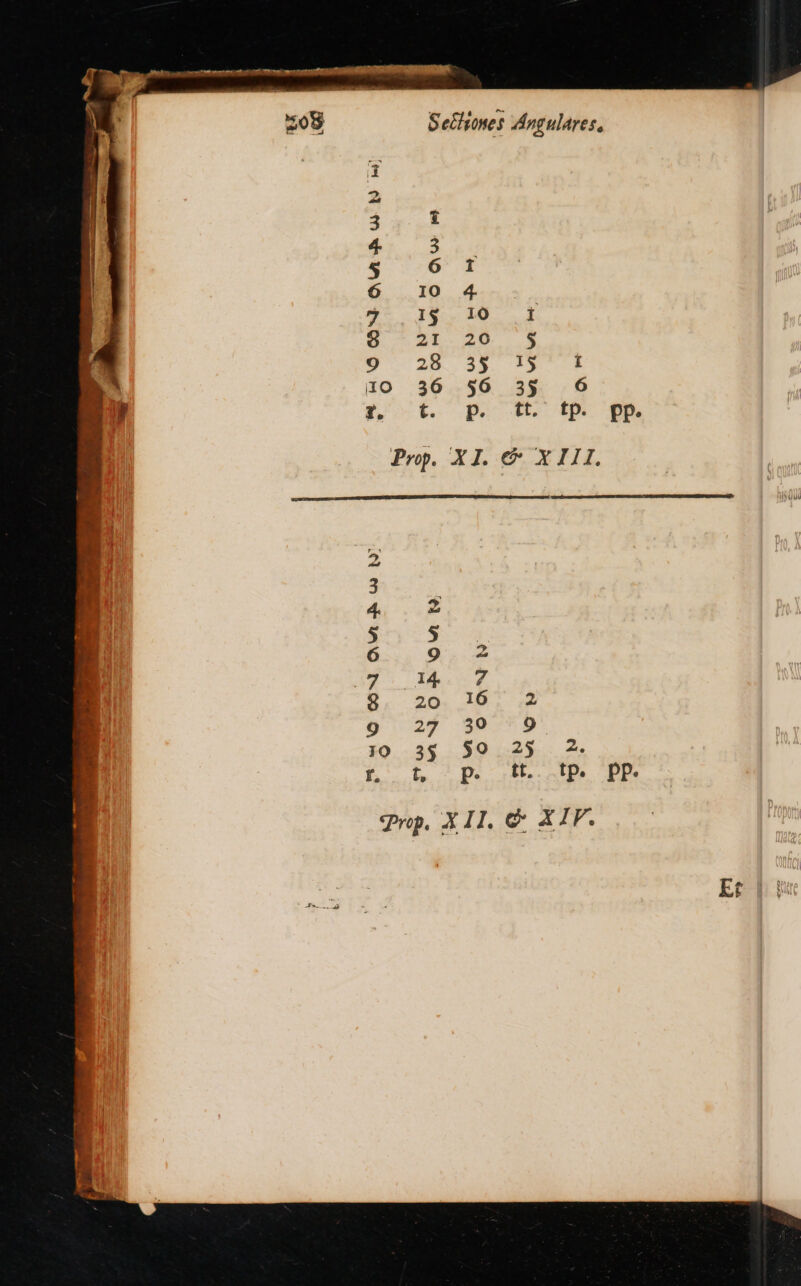 208 Sectiones Angulares.
1
2
3 1
4 3
5 6 1
6 10 4
7 15 10 1
8 21 20 5
9 28 35 15 1
10 36 56 35 6
r. t. p. tt. tp. pp.
Prop. XI. & XIII.
2
3
4 2
5 5
6 9 2
7 14 7
8 20 16 2
9 27 30 9
10 35 50 25 2.
r. t. p. tt. tp. pp.
Prop. XII. & XIV.
Et